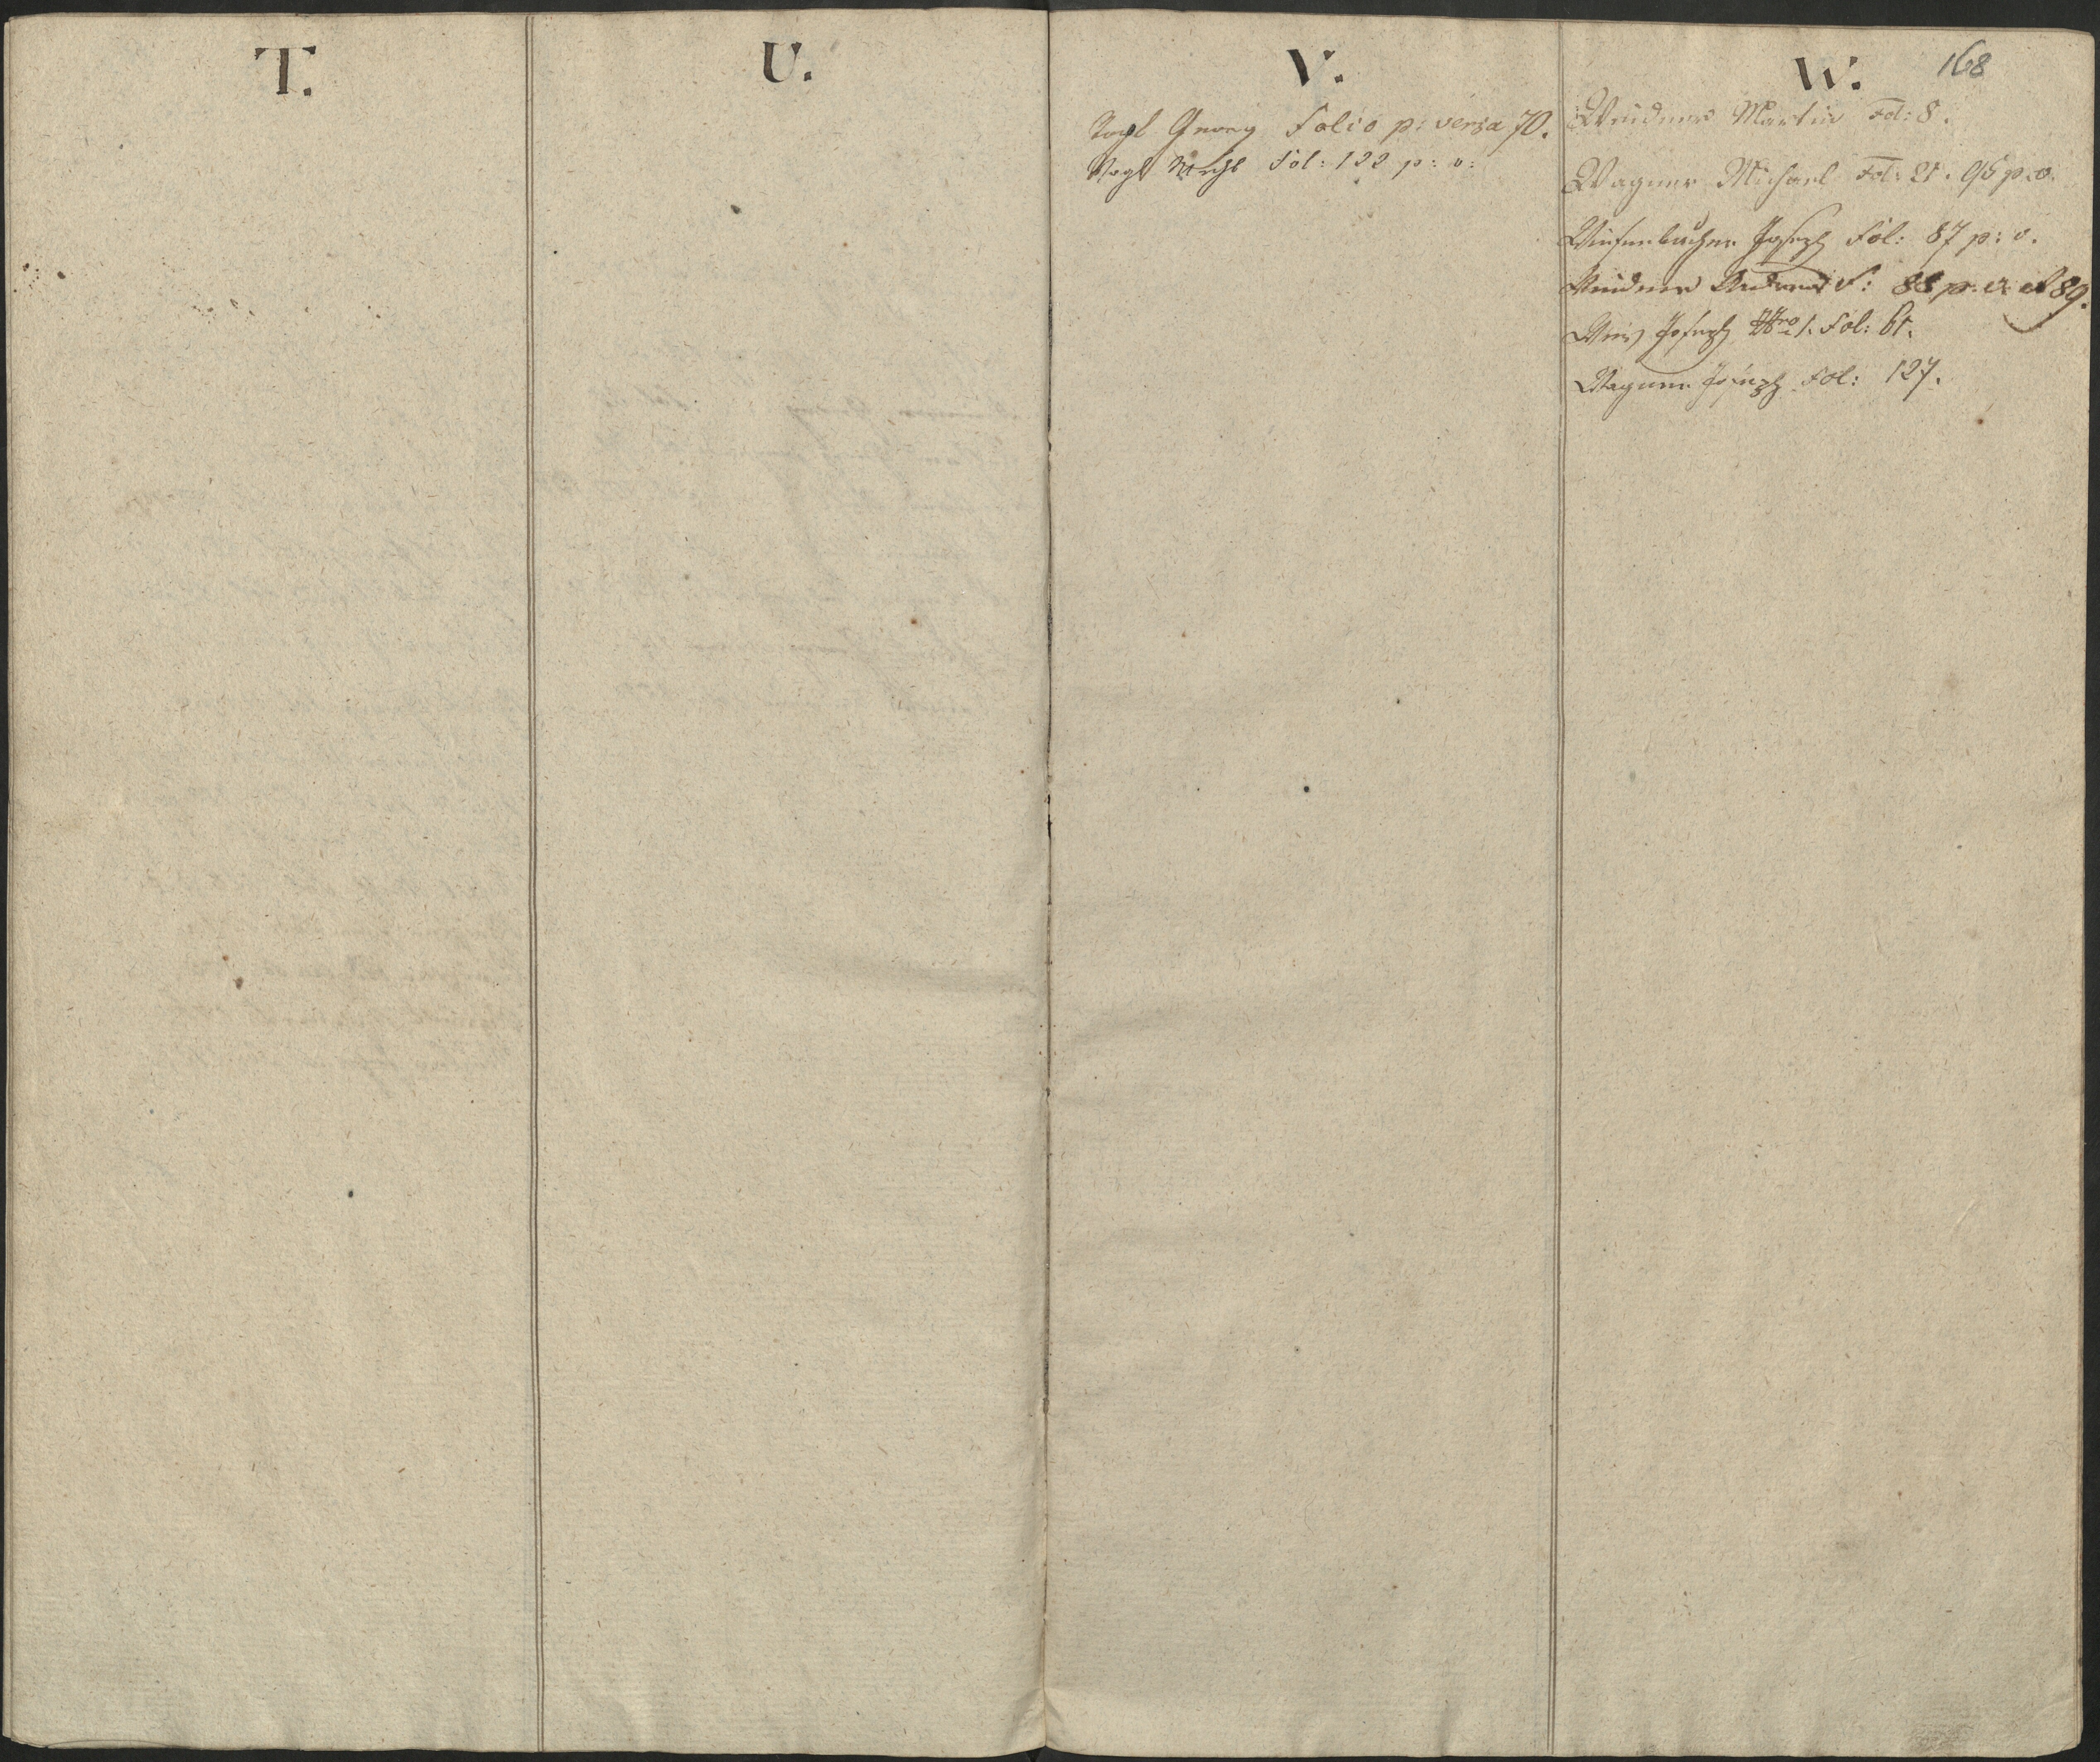 T.
U.
V.
Vogl Georg Folio p: versa 70.
Vogl Fol: 122 p: v:
W. 168
Weidner Martin Fol: 8.
Wagner Michael Fol: 21. 95 p: v.
Wiesenbacher Joseph Fol: 87 p: v.
Weidner Andreas F: 88 p. v. et 89.
Weis Joseph Nro 1. Fol: 61.
Wagner Joseph Fol: 127.